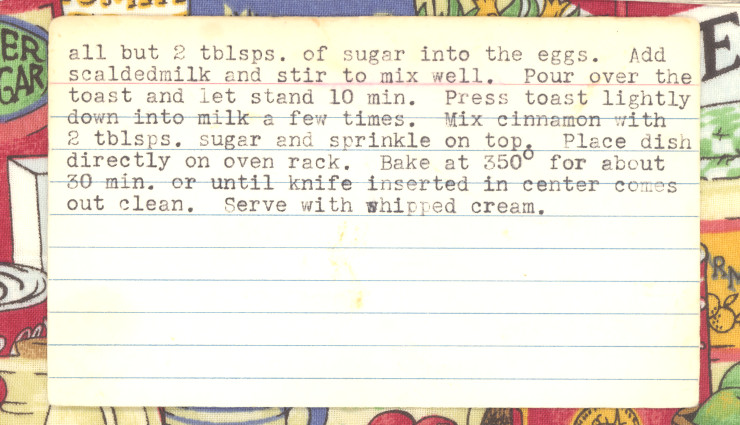 all but 2 tblsps. of sugar into the eggs. Add
scaldedmilk and stir to mix well. Pour over the
toast and let stand 10 min. Press toast lightly
down into milk a few times. Mix cinnamon with
2 tblsps. sugar and sprinkle on top. Place dish
directly on oven rack. Bake at 350° for about
30 min. or until knife inserted in center comes
out clean. Serve with whipped cream.
ER
GAR
E
RM